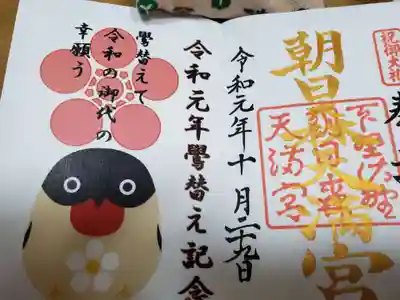 奉
祝御大礼
朝日森天満宮
下野佐野
朝日森
天満宮
令和元年十月二十九日
令和元年鷽替え記念
鷽替えて
令和の御代の
幸願う